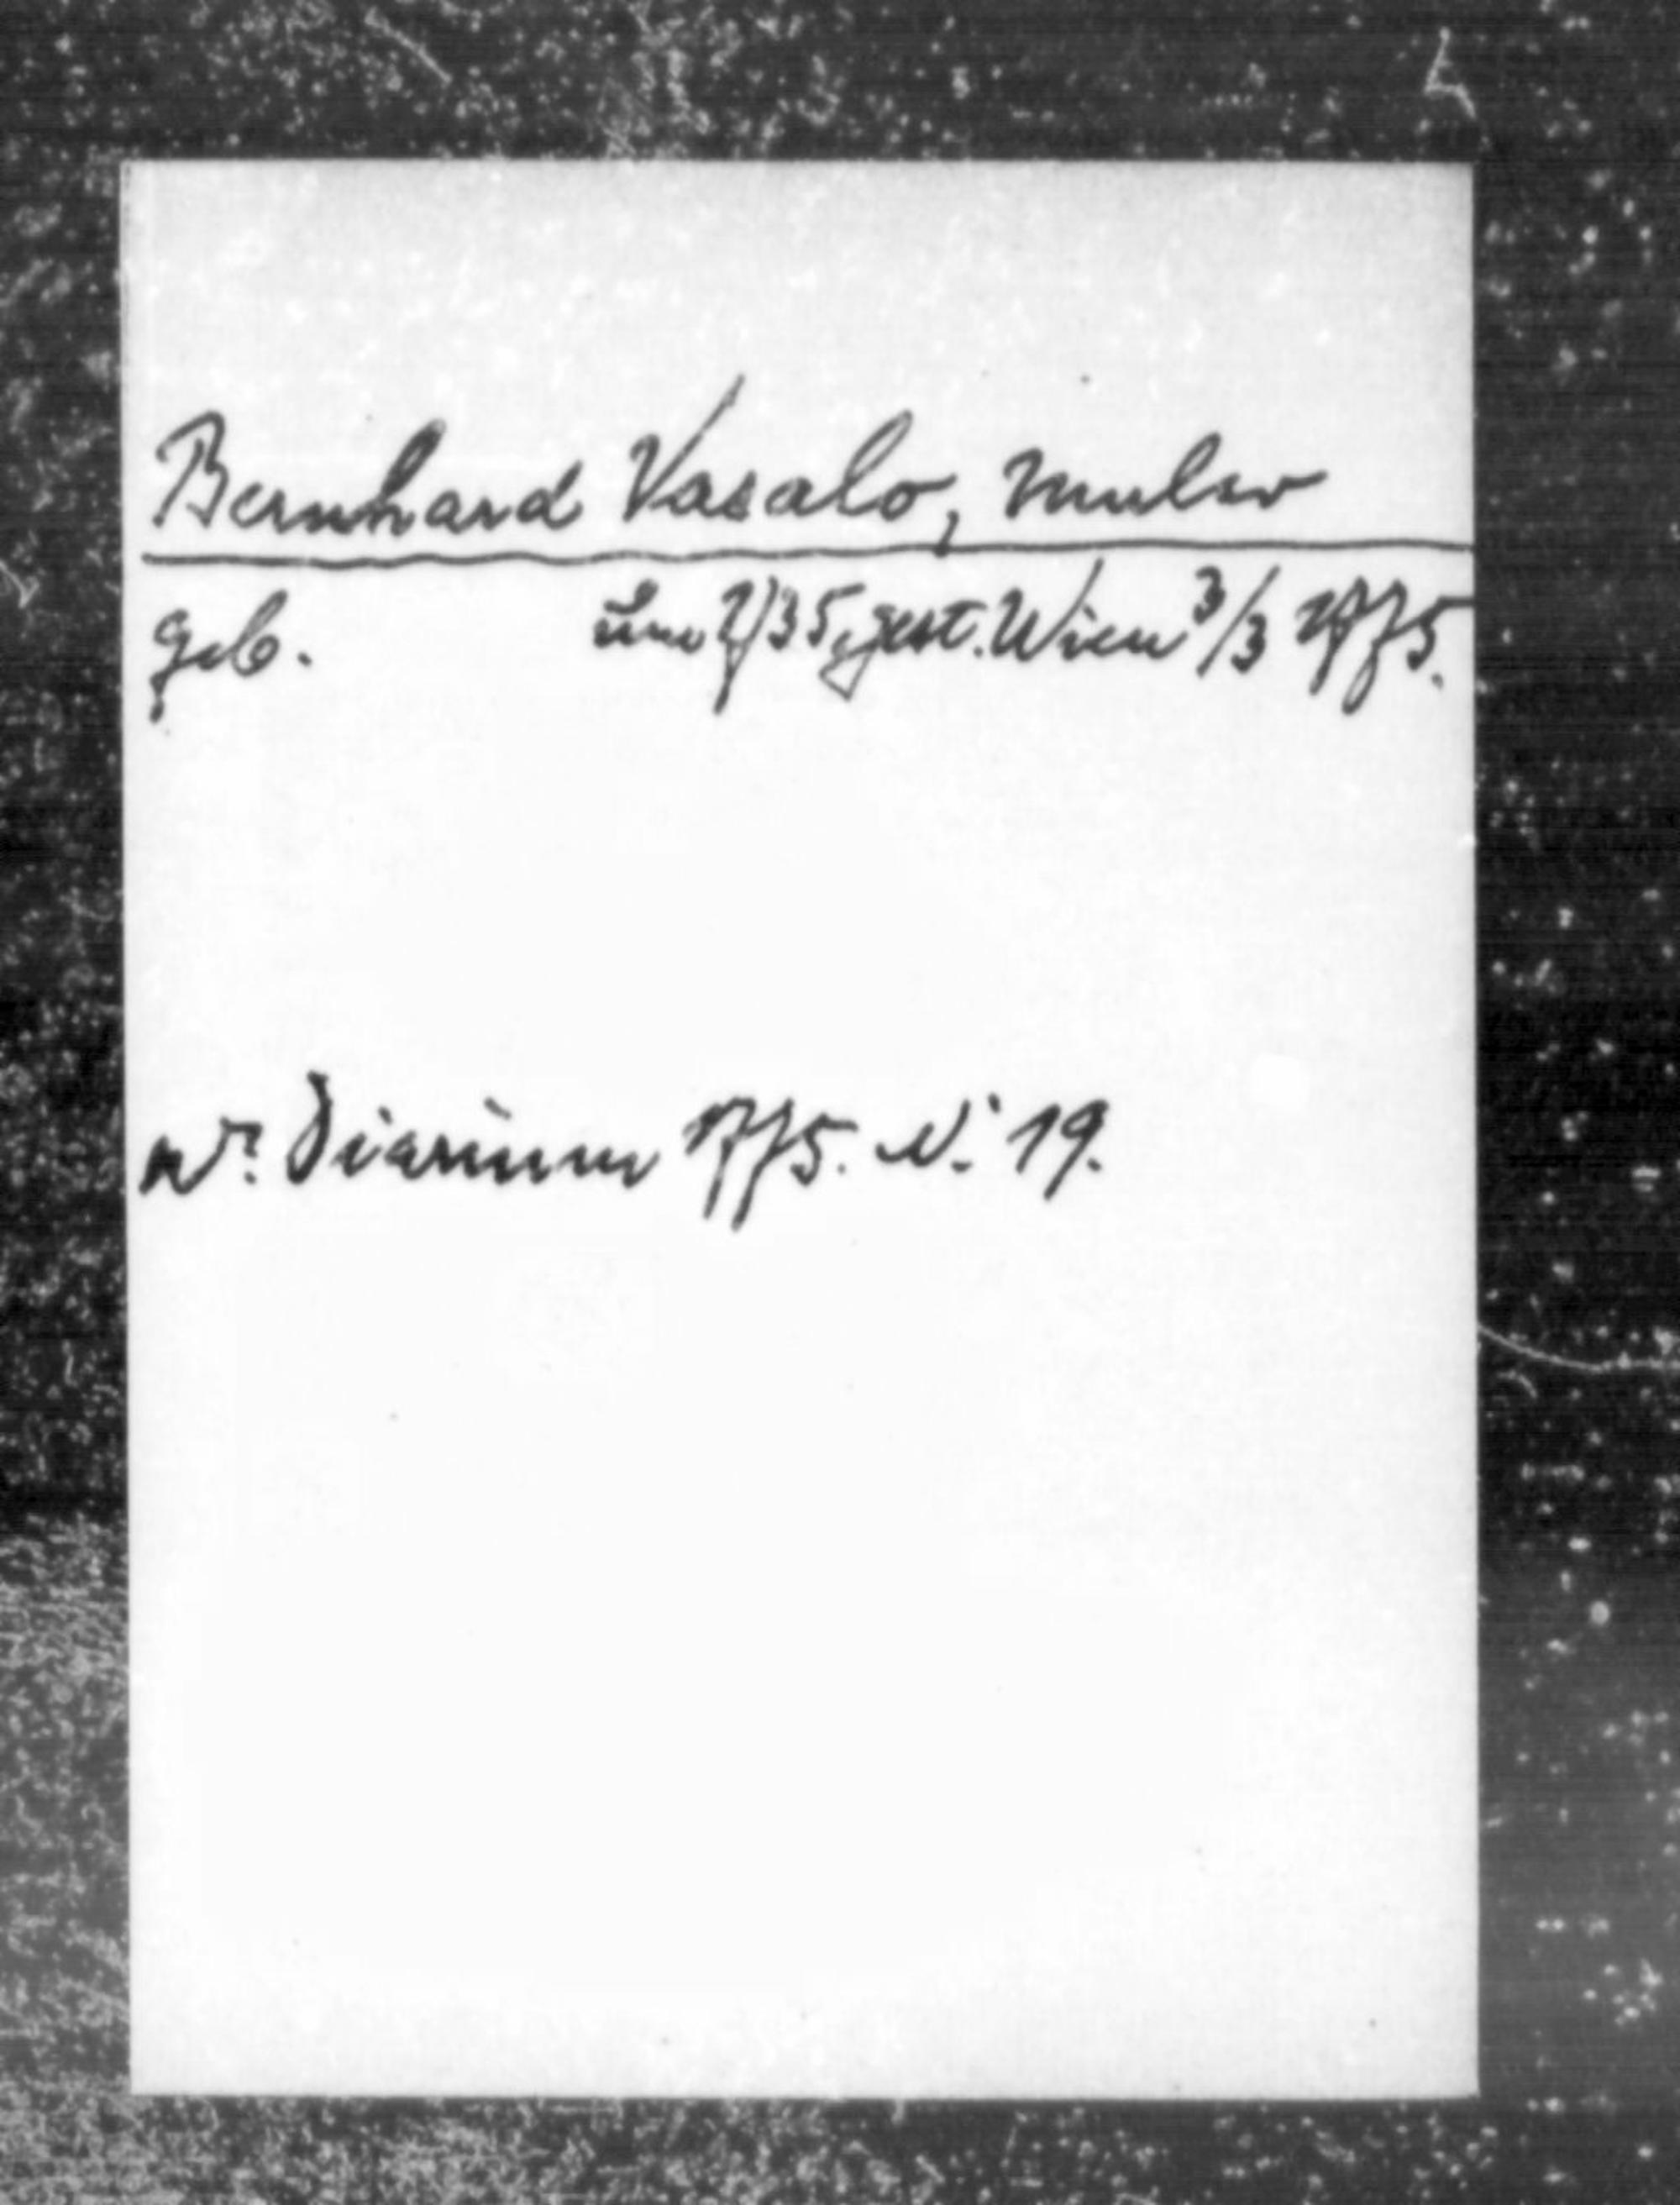 Bernhard Vasalo, Maler
geb. um 1735, gest. Wien 3/3 1775.
Wr. Diarium 1775. N. 19.